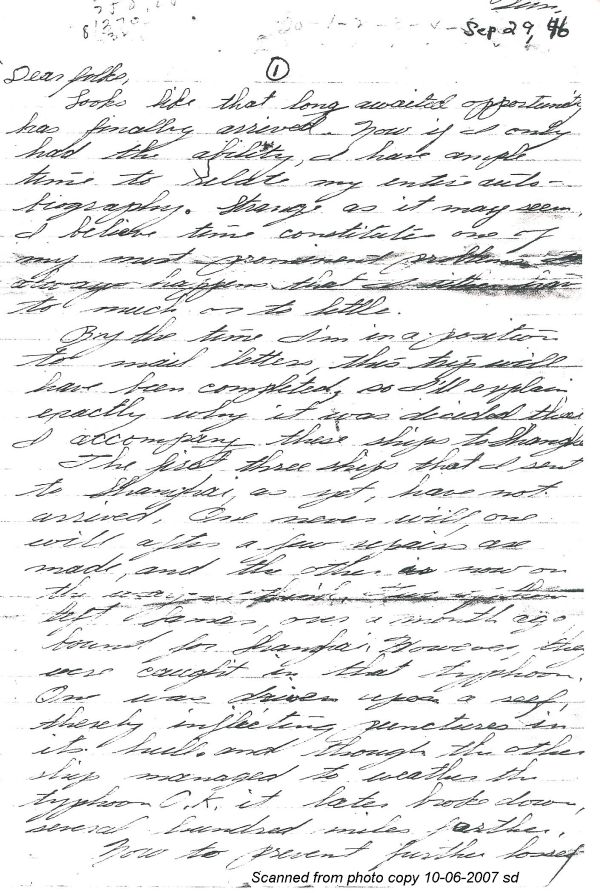 Sep 29, 46
①
Dear folks,
Looks like that long awaited opportunity
has finally arrived. Now if I only
had the ability, I have ample
time to relate my entire auto-
biography. Strange as it may seem,
I believe time constitute one of
my most prominent problems. It
always happens that I either have
to much or to little.
By the time I'm in a position
to mail letters, this trip will
have been completed, so I'll explain
exactly why it was decided that
I accompany these ships to Shanghai
The first three ships that I sent
to Shanghai, as yet, have not
arrived. One never will, one
will after a few repairs are
made, and the other is now on
the way
left Samar, over a month ago
bound for Shanghai. However, they
were caught in that typhoon.
One was driven upon a reef,
thereby inflicting punctures in
its hull and though the other
ship managed to weather the
typhoon O.K. it later broke down,
several hundred miles farther.
Now to prevent further losses
Scanned from photo copy 10-06-2007 sd